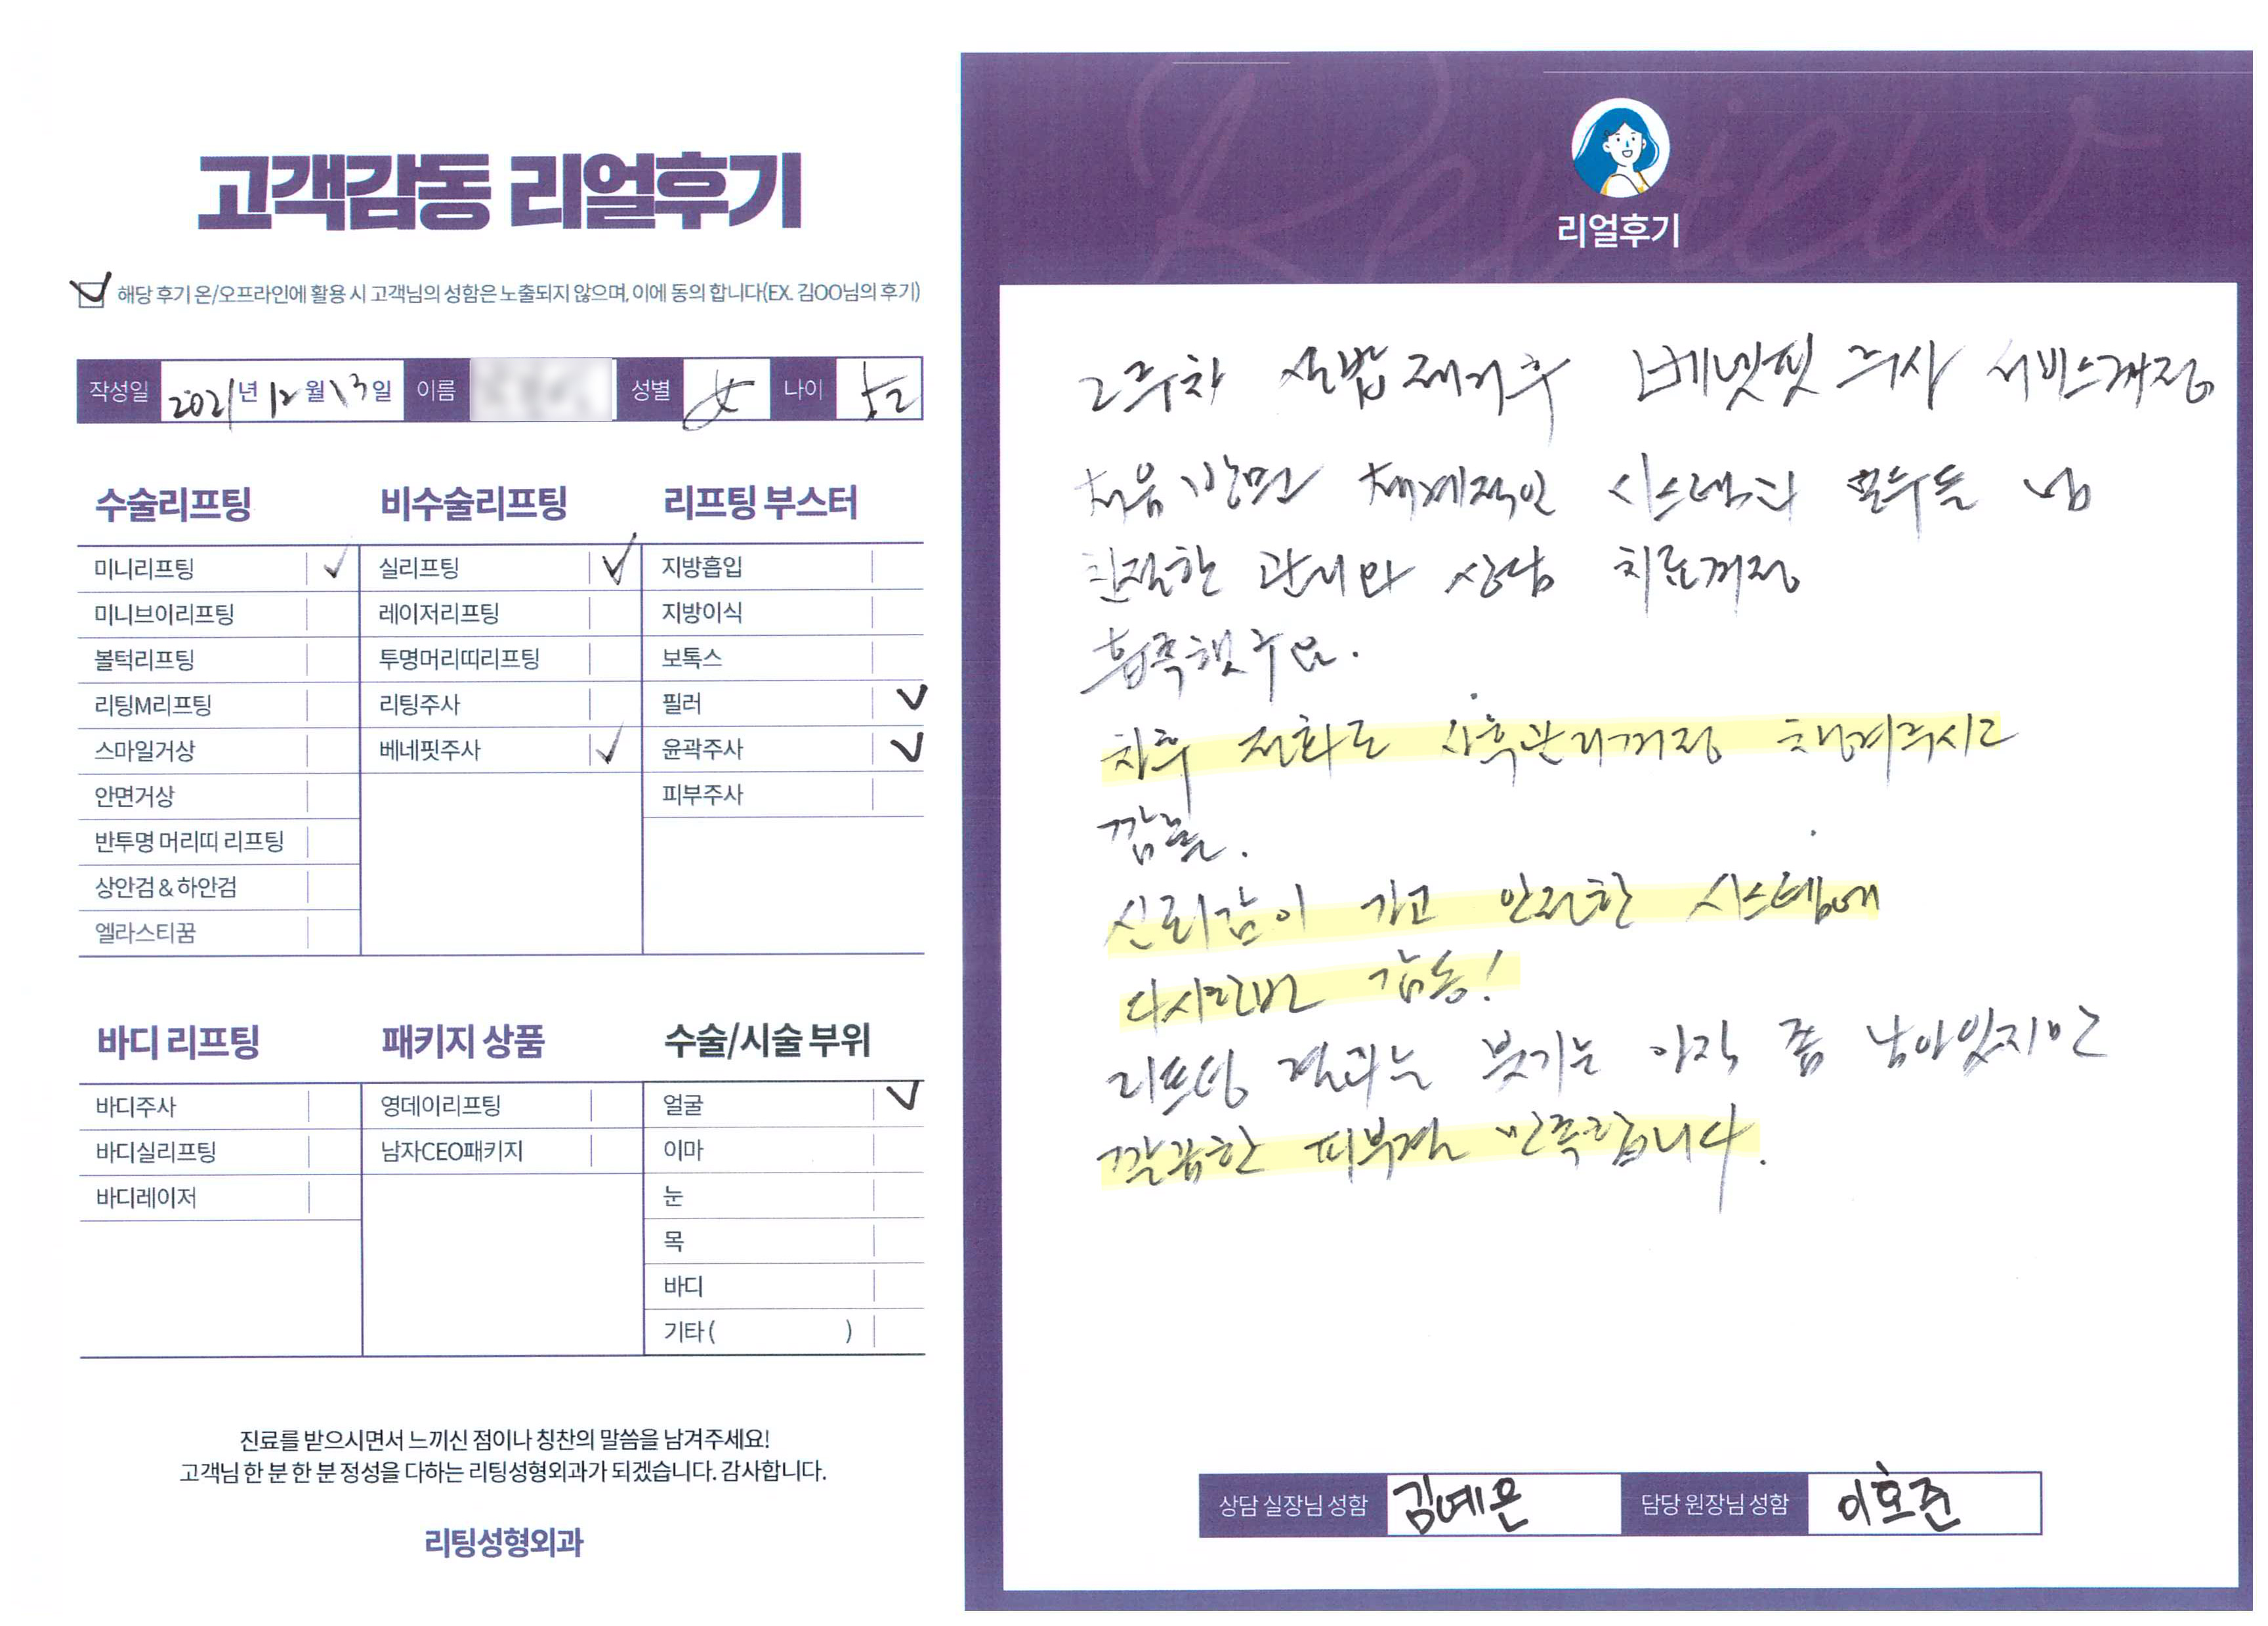 고객감동 리얼후기
해당 후기 온/오프라인에 활용 시 고객님의 성함은 노출되지 않으며, 이에 동의 합니다(EX. 김OO님의 후기)
작성일 2021년 12월 13일 이름 성별 女 나이 52
수술리프팅
미니리프팅
미니브이리프팅
볼턱리프팅
리팅M리프팅
스마일거상
안면거상
반투명 머리띠 리프팅
상안검 & 하안검
엘라스티꿈
비수술리프팅
실리프팅
레이저리프팅
투명머리띠리프팅
리팅주사
베네핏주사
리프팅 부스터
지방흡입
지방이식
보톡스
필러
윤곽주사
피부주사
바디 리프팅
바디주사
바디실리프팅
바디레이저
패키지 상품
영데이리프팅
남자CEO패키지
수술/시술 부위
얼굴
이마
눈
목
바디
기타 ( )
진료를 받으시면서 느끼신 점이나 칭찬의 말씀을 남겨주세요!
고객님 한 분 한 분 정성을 다하는 리팅성형외과가 되겠습니다. 감사합니다.
리팅성형외과
Review
리얼후기
2주차 실밥제거후 베넷핏 주사 서비스까정
처음 방문 체계적인 시스템과 모두들 넘
친절한 관리와 상담 치료까정
흡족했구요.
차후 전화로 사후관리까정 챙겨주시고
깜놀.
신뢰감이 가고 안전한 시스템에
다시한번 감동!
리프팅 결과는 붓기는 아직 좀 남아있지만
깔끔한 피부결 만족합니다.
상담 실장님 성함 김예은 담당 원장님 성함 이호준